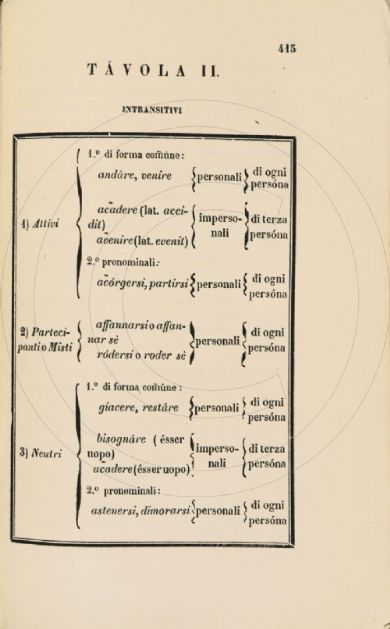 415
TÁVOLA II.
INTRANSITIVI
1.º di forma comũne:
andáre, veníre { personali } di ogni persóna
1) Attivi
acãdere (lat. accidit)
avenire (lat. evenit) { impersonali } di terza persóna
2.º pronominali:
acórgersi, partirsi { personali { di ogni persóna
2) Partecipanti o Misti
affannarsi o affannar sè
ródersi o roder sè } personali { di ogni persóna
1.º di forma comũne:
giacere, restáre { personali { di ogni persóna
3) Neutri
bisognáre (ésser uopo)
acãdere (ésser uopo) } impersonali { di terza persóna
2.º pronominali:
astenersi, dimorarsi { personali { di ogni persóna